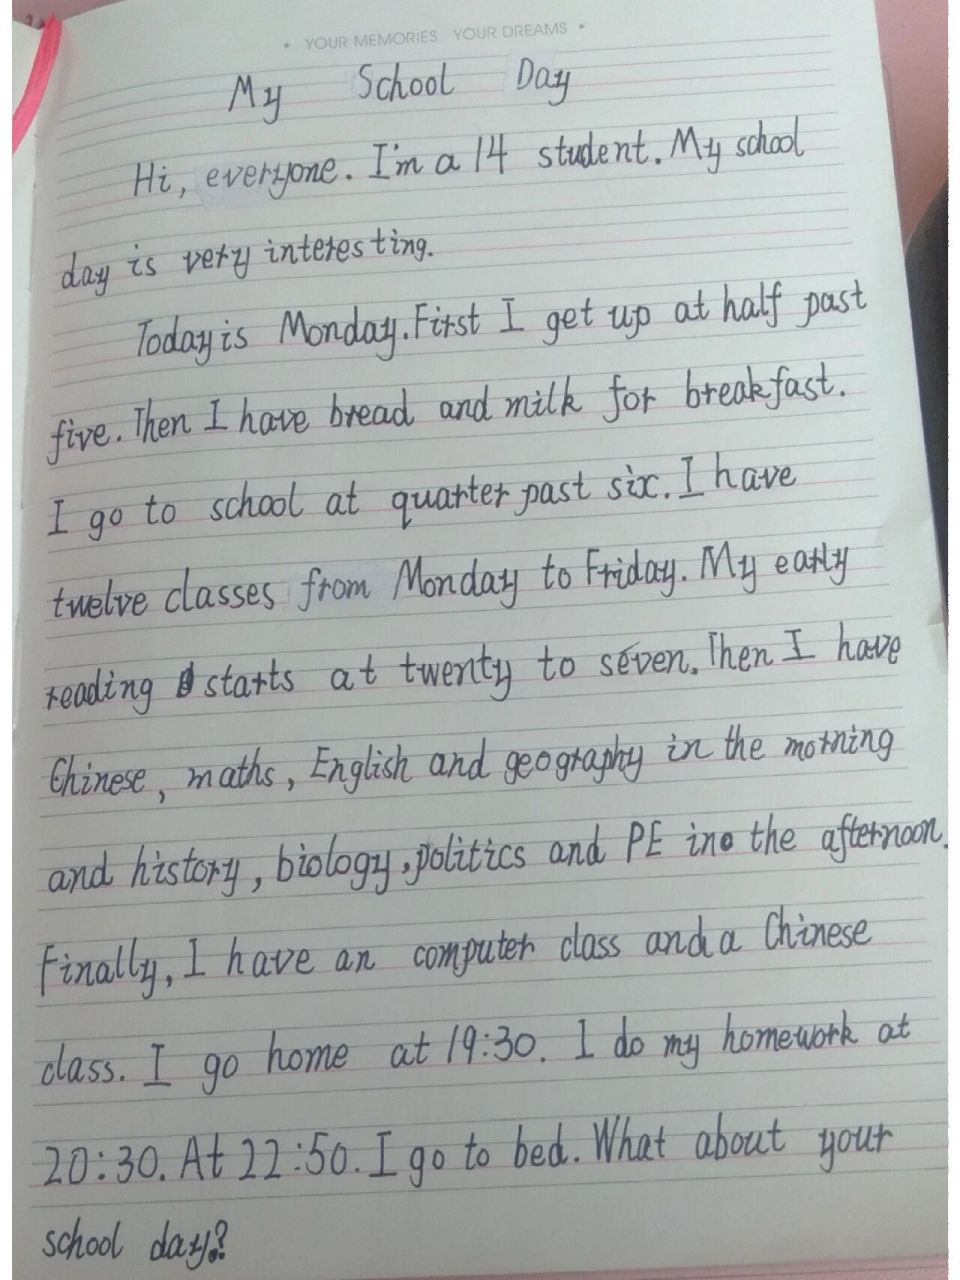 • YOUR MEMORIES YOUR DREAMS •
My School Day
Hi, everyone. I'm a 14 student. My school
day is very interesting.
Today is Monday. First I get up at half past
five. Then I have bread and milk for breakfast.
I go to school at quarter past six. I have
twelve classes from Monday to Friday. My early
reading starts at twenty to seven. Then I have
Chinese, maths, English and geography in the morning
and history, biology, politics and PE in the afternoon.
Finally, I have an computer class and a Chinese
class. I go home at 19:30. I do my homework at
20:30. At 22:50. I go to bed. What about your
school day?